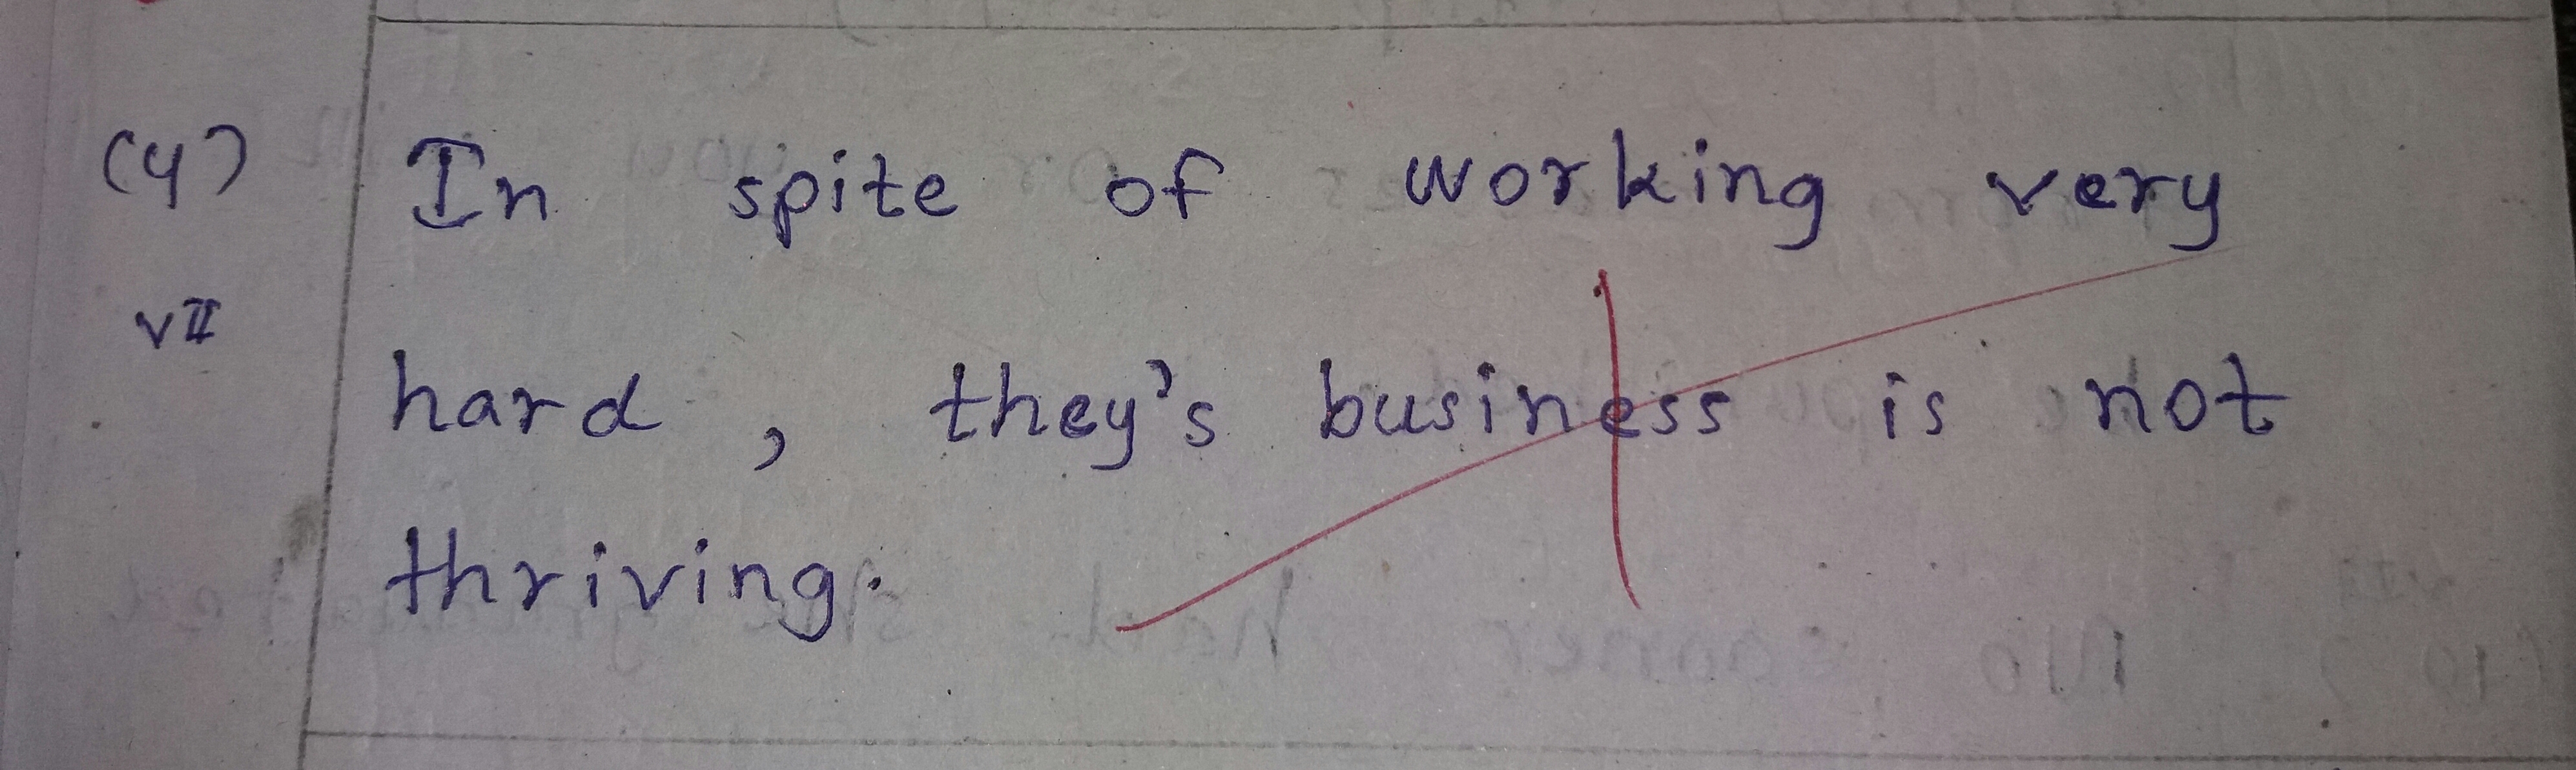 (4) In spite of working very
vII hard, they's business is not
thriving.